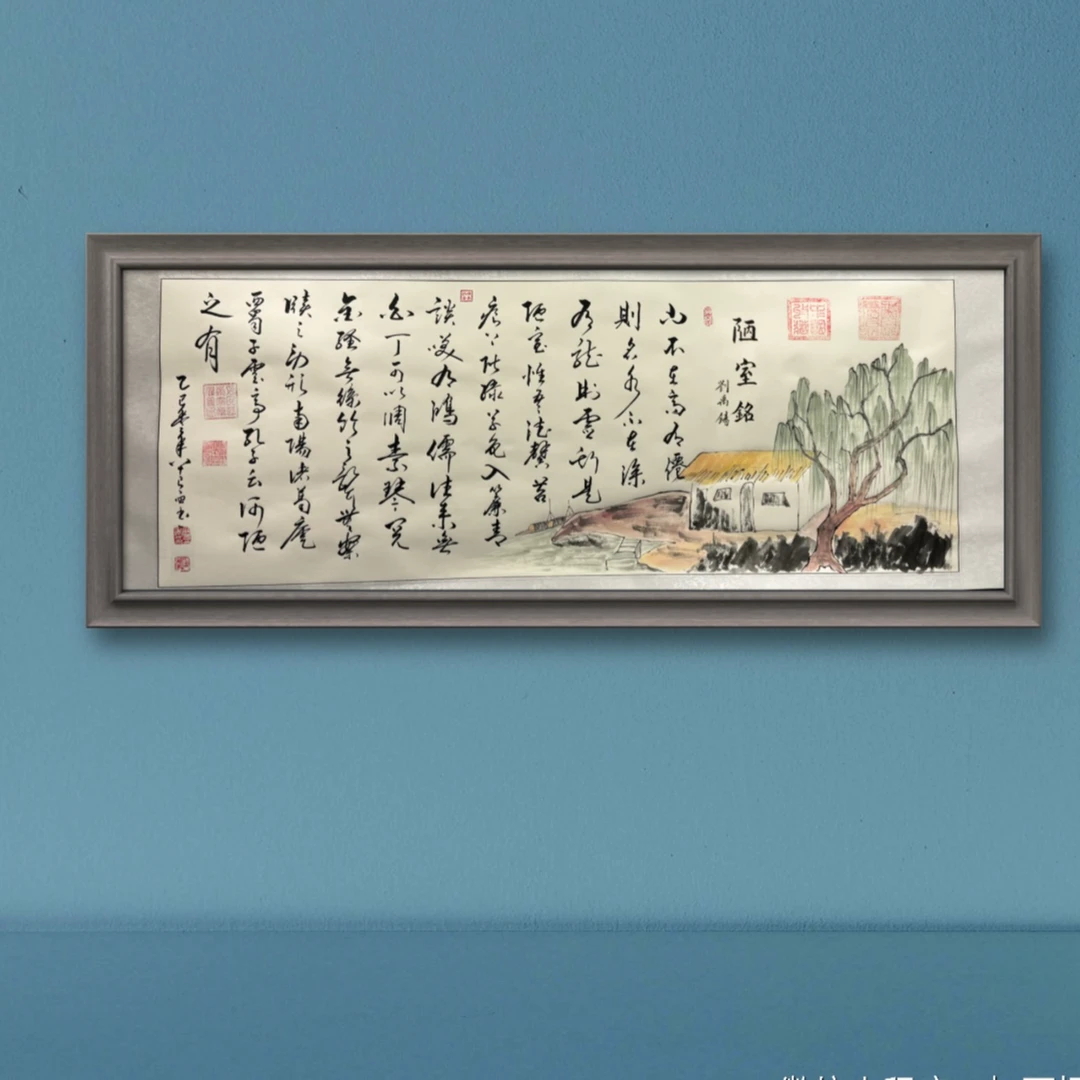 陋室銘
劉禹錫
山不在高有僊
則名水不在深
有龍則靈斯是
陋室惟吾德馨苔
痕上階綠草色入簾青
談笑有鴻儒往來無
白丁可以調素琴閱
金經無絲竹之無案
牘之勞形南陽諸葛廬
西蜀子雲亭孔子云何陋
之有
乙巳年書